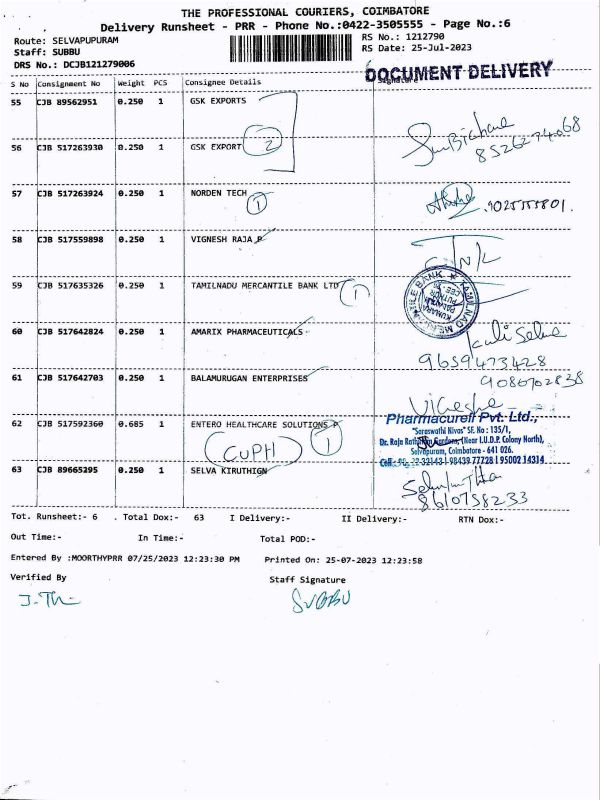 THE PROFESSIONAL COURIERS, COIMBATORE
Delivery Runsheet - PRR - Phone No.:0422-3505555 - Page No.:6
Route: SELVAPUPURAM RS No.: 1212790
Staff: SUBBU RS Date: 25-Jul-2023
DRS No.: DCJB121279006
DOCUMENT DELIVERY
S No Consignment No Weight PCS Consignee Details Signature
55 CJB 89562951 0.250 1 GSK EXPORTS
56 CJB 517263930 0.250 1 GSK EXPORT 2
8526274068
57 CJB 517263924 0.250 1 NORDEN TECH 1
58 CJB 517559898 0.250 1 VIGNESH RAJA P
59 CJB 517635326 0.250 1 TAMILNADU MERCANTILE BANK LTD 1
60 CJB 517642824 0.250 1 AMARIX PHARMACEUTICALS
9659473428
61 CJB 517642703 0.250 1 BALAMURUGAN ENTERPRISES
9080702838
62 CJB 517592360 0.685 1 ENTERO HEALTHCARE SOLUTIONS P 1
(CUPH)
Pharmacureil Pvt. Ltd.,
"Saraswathi Nivas" SF. No : 135/1,
Dr. Raja Rathinam Gardens, (Near I.U.D.P. Colony North),
Selvapuram, Coimbatore - 641 026.
98439 77728 I 95002 14314
63 CJB 89665295 0.250 1 SELVA KIRUTHIGN
8610758233
Tot. Runsheet:- 6 . Total Dox:- 63 I Delivery:- II Delivery:- RTN Dox:-
Out Time:- In Time:- Total POD:-
Entered By :MOORTHYPRR 07/25/2023 12:23:30 PM Printed On: 25-07-2023 12:23:58
Verified By Staff Signature
SUBBU